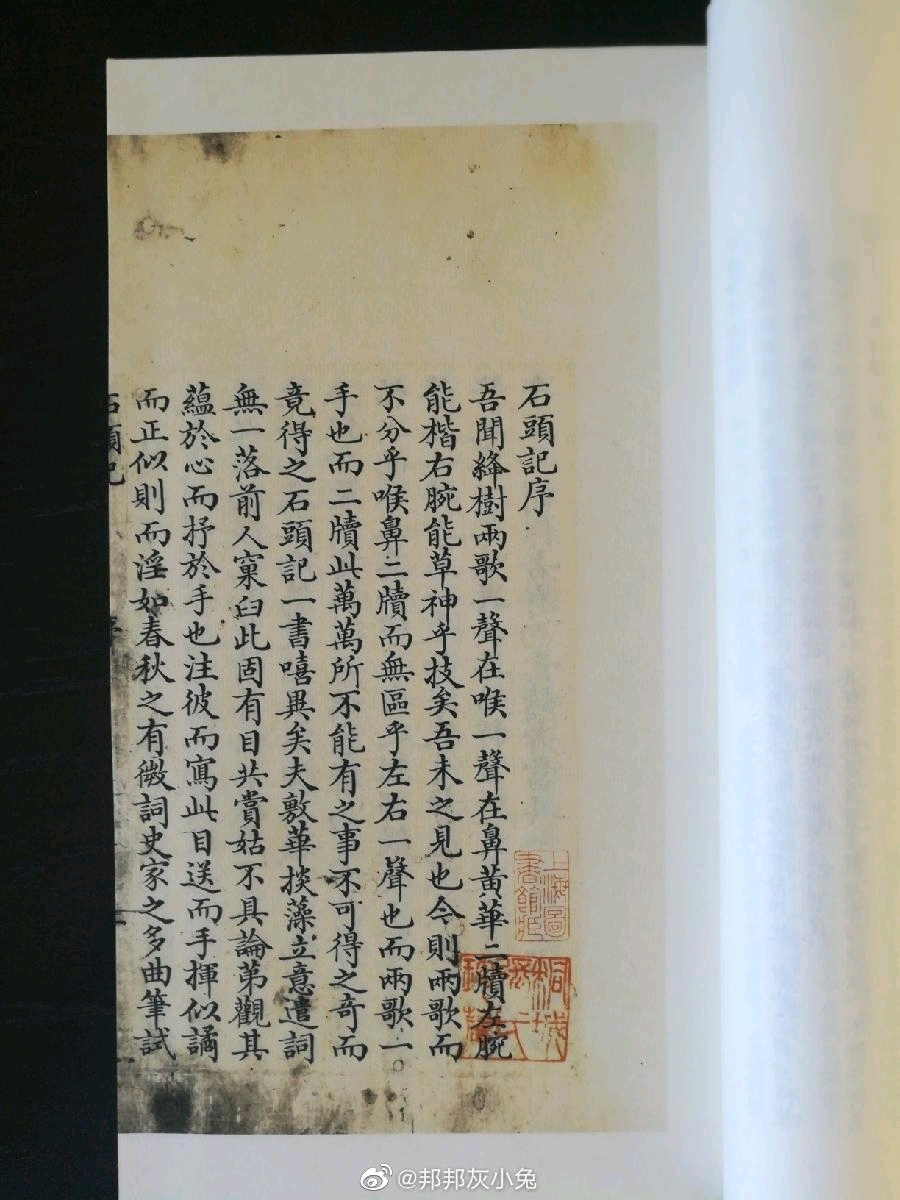 石頭記序
吾聞絳樹兩歌一聲在喉一聲在鼻黃華二牘左腕
能楷右腕能草神乎技矣吾未之見也今則兩歌而
不分乎喉鼻二牘而無區乎左右一聲也而兩歌一
手也而二牘此萬萬所不能有之事不可得之奇而
竟得之石頭記一書嘻異矣夫敷華掞藻立意遣詞
無一落前人窠臼此固有目共賞姑不具論第觀其
蘊於心而抒於手也注彼而寫此目送而手揮似譎
而正似則而淫如春秋之有微詞史家之多曲筆試
石頭記
序
上海圖書館藏
桐城
@邦邦灰小兔